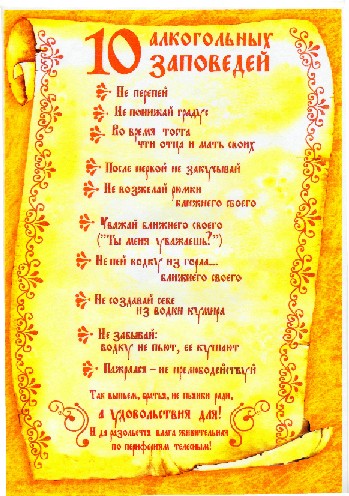 10 АЛКОГОЛЬНЫХ
ЗАПОВЕДЕЙ
Не перепей
Не понижай градус
Во время тоста
чти отца и мать своих
После первой не закусывай
Не возжелай рюмки
ближнего своего
Уважай ближнего своего
("Ты меня уважаешь?")
Не пей водку из горла...
ближнего своего
Не создавай себе
из водки кумира
Не забывай:
водку не пьют, ее кушают
Нажрался – не прелюбодействуй
Так выпьем, братья, не пьянки ради,
а удовольствия для!
И да разольется влага живительная
по перифериям телесным!